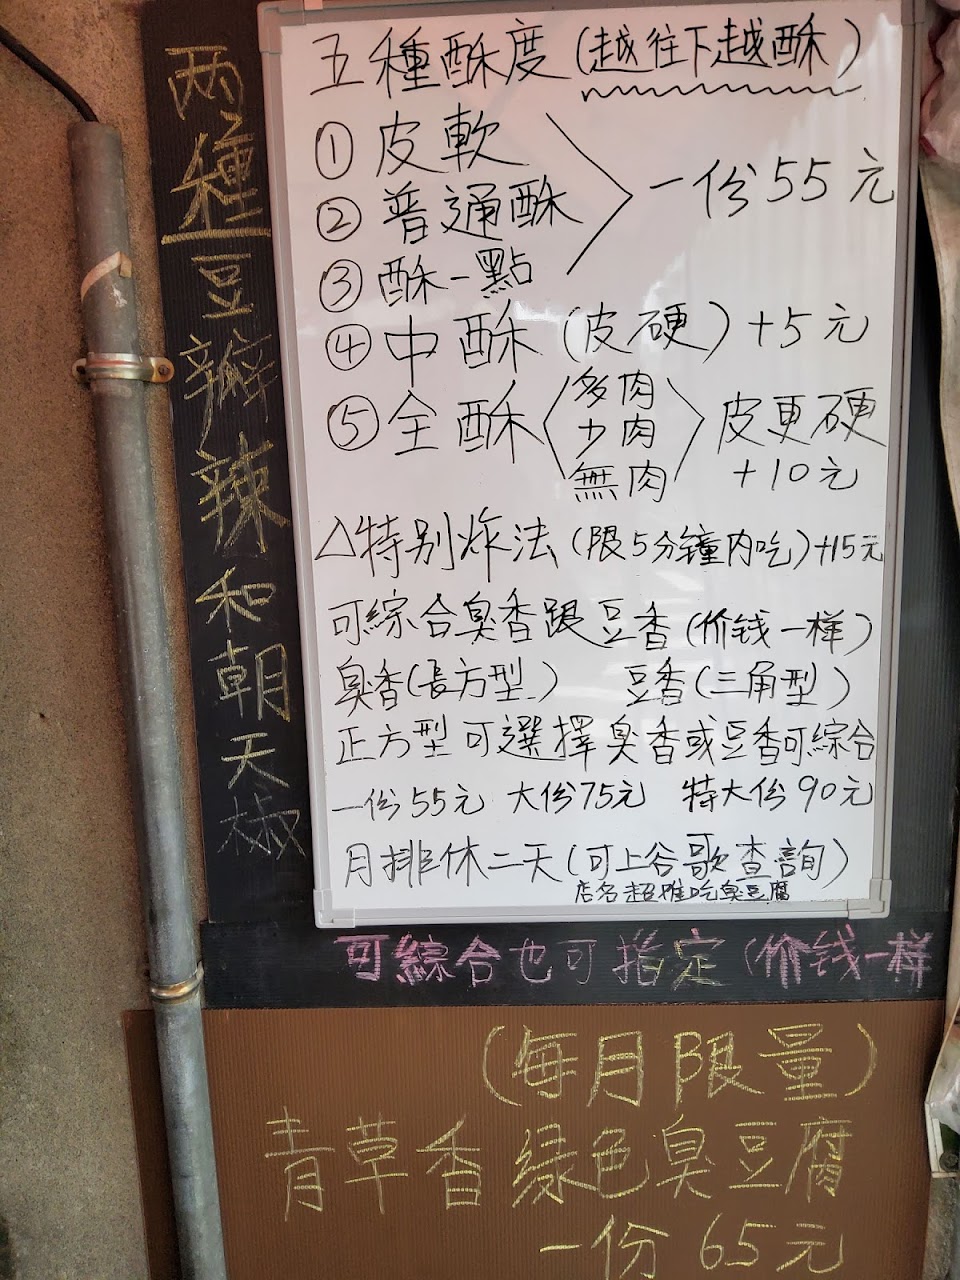 両種豆瓣辣和朝天椒
五種酥度(越往下越酥)
①皮軟
②普通酥
③酥一點
一份55元
④中酥(皮硬)+5元
⑤全酥〈多肉 少肉 無肉〉皮更硬
+10元
△特別炸法(限5分鐘內吃)+15元
可綜合臭香跟豆香(价钱一樣)
臭香(長方型) 豆香(三角型)
正方型可選擇臭香或豆香可綜合
一份55元 大份75元 特大份90元
月排休二天(可上谷歌查詢)
店名超推吃臭豆腐
可綜合也可指定(价钱一样
(每月限量)
青草香绿色臭豆腐
一份65元